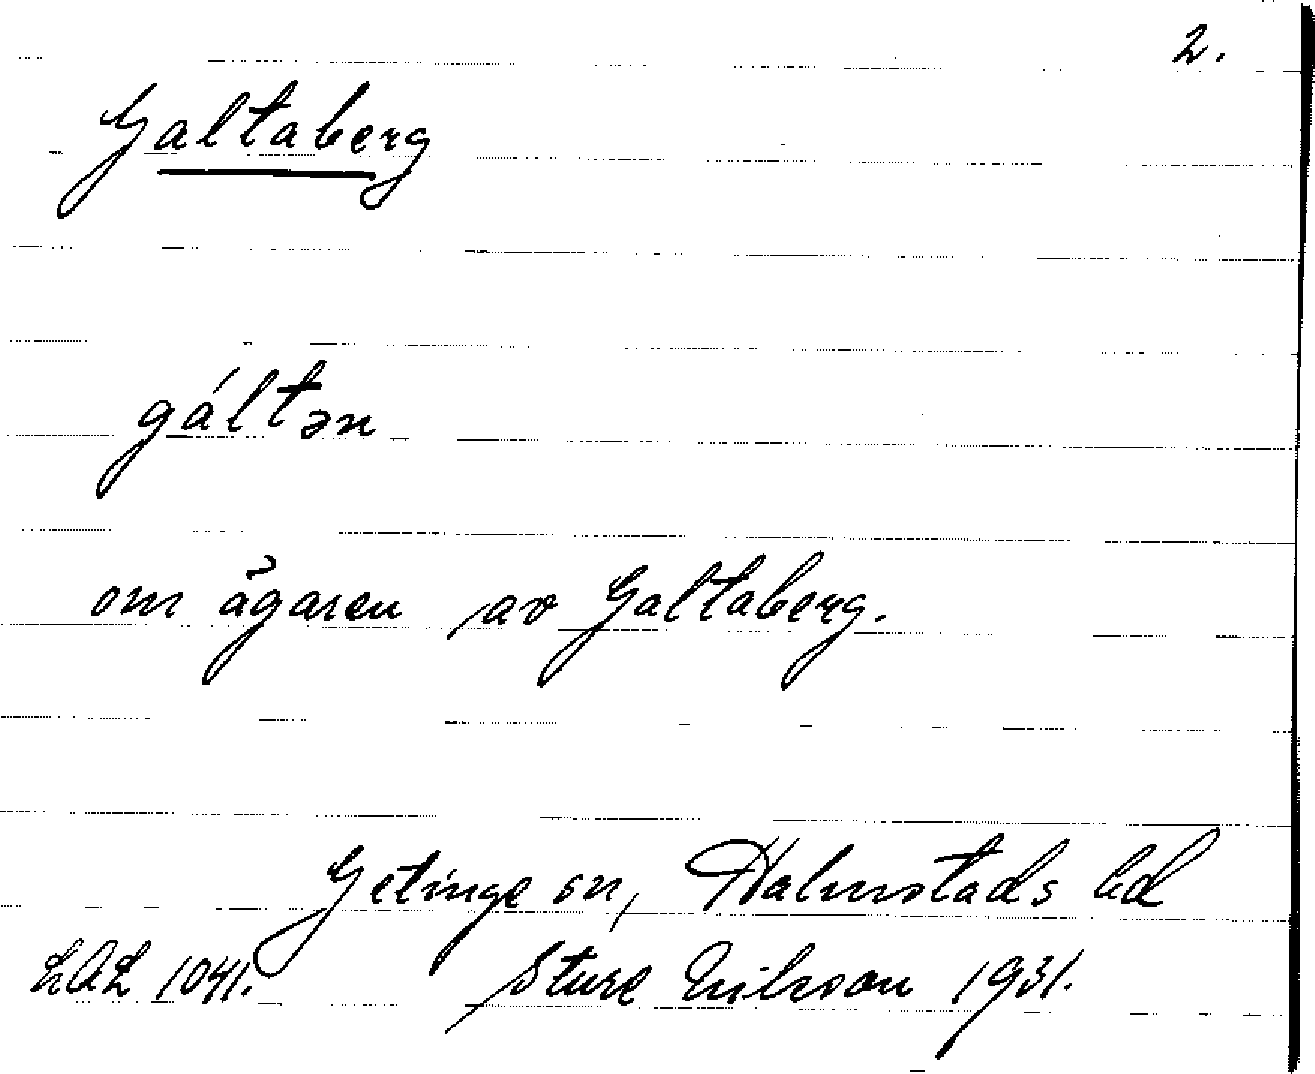 2.
Galtaberg
gáltən
om ägaren av Galtaberg.
Getinge sn, Halmstads hd
LAL 1041. Sture Erikson 1931.